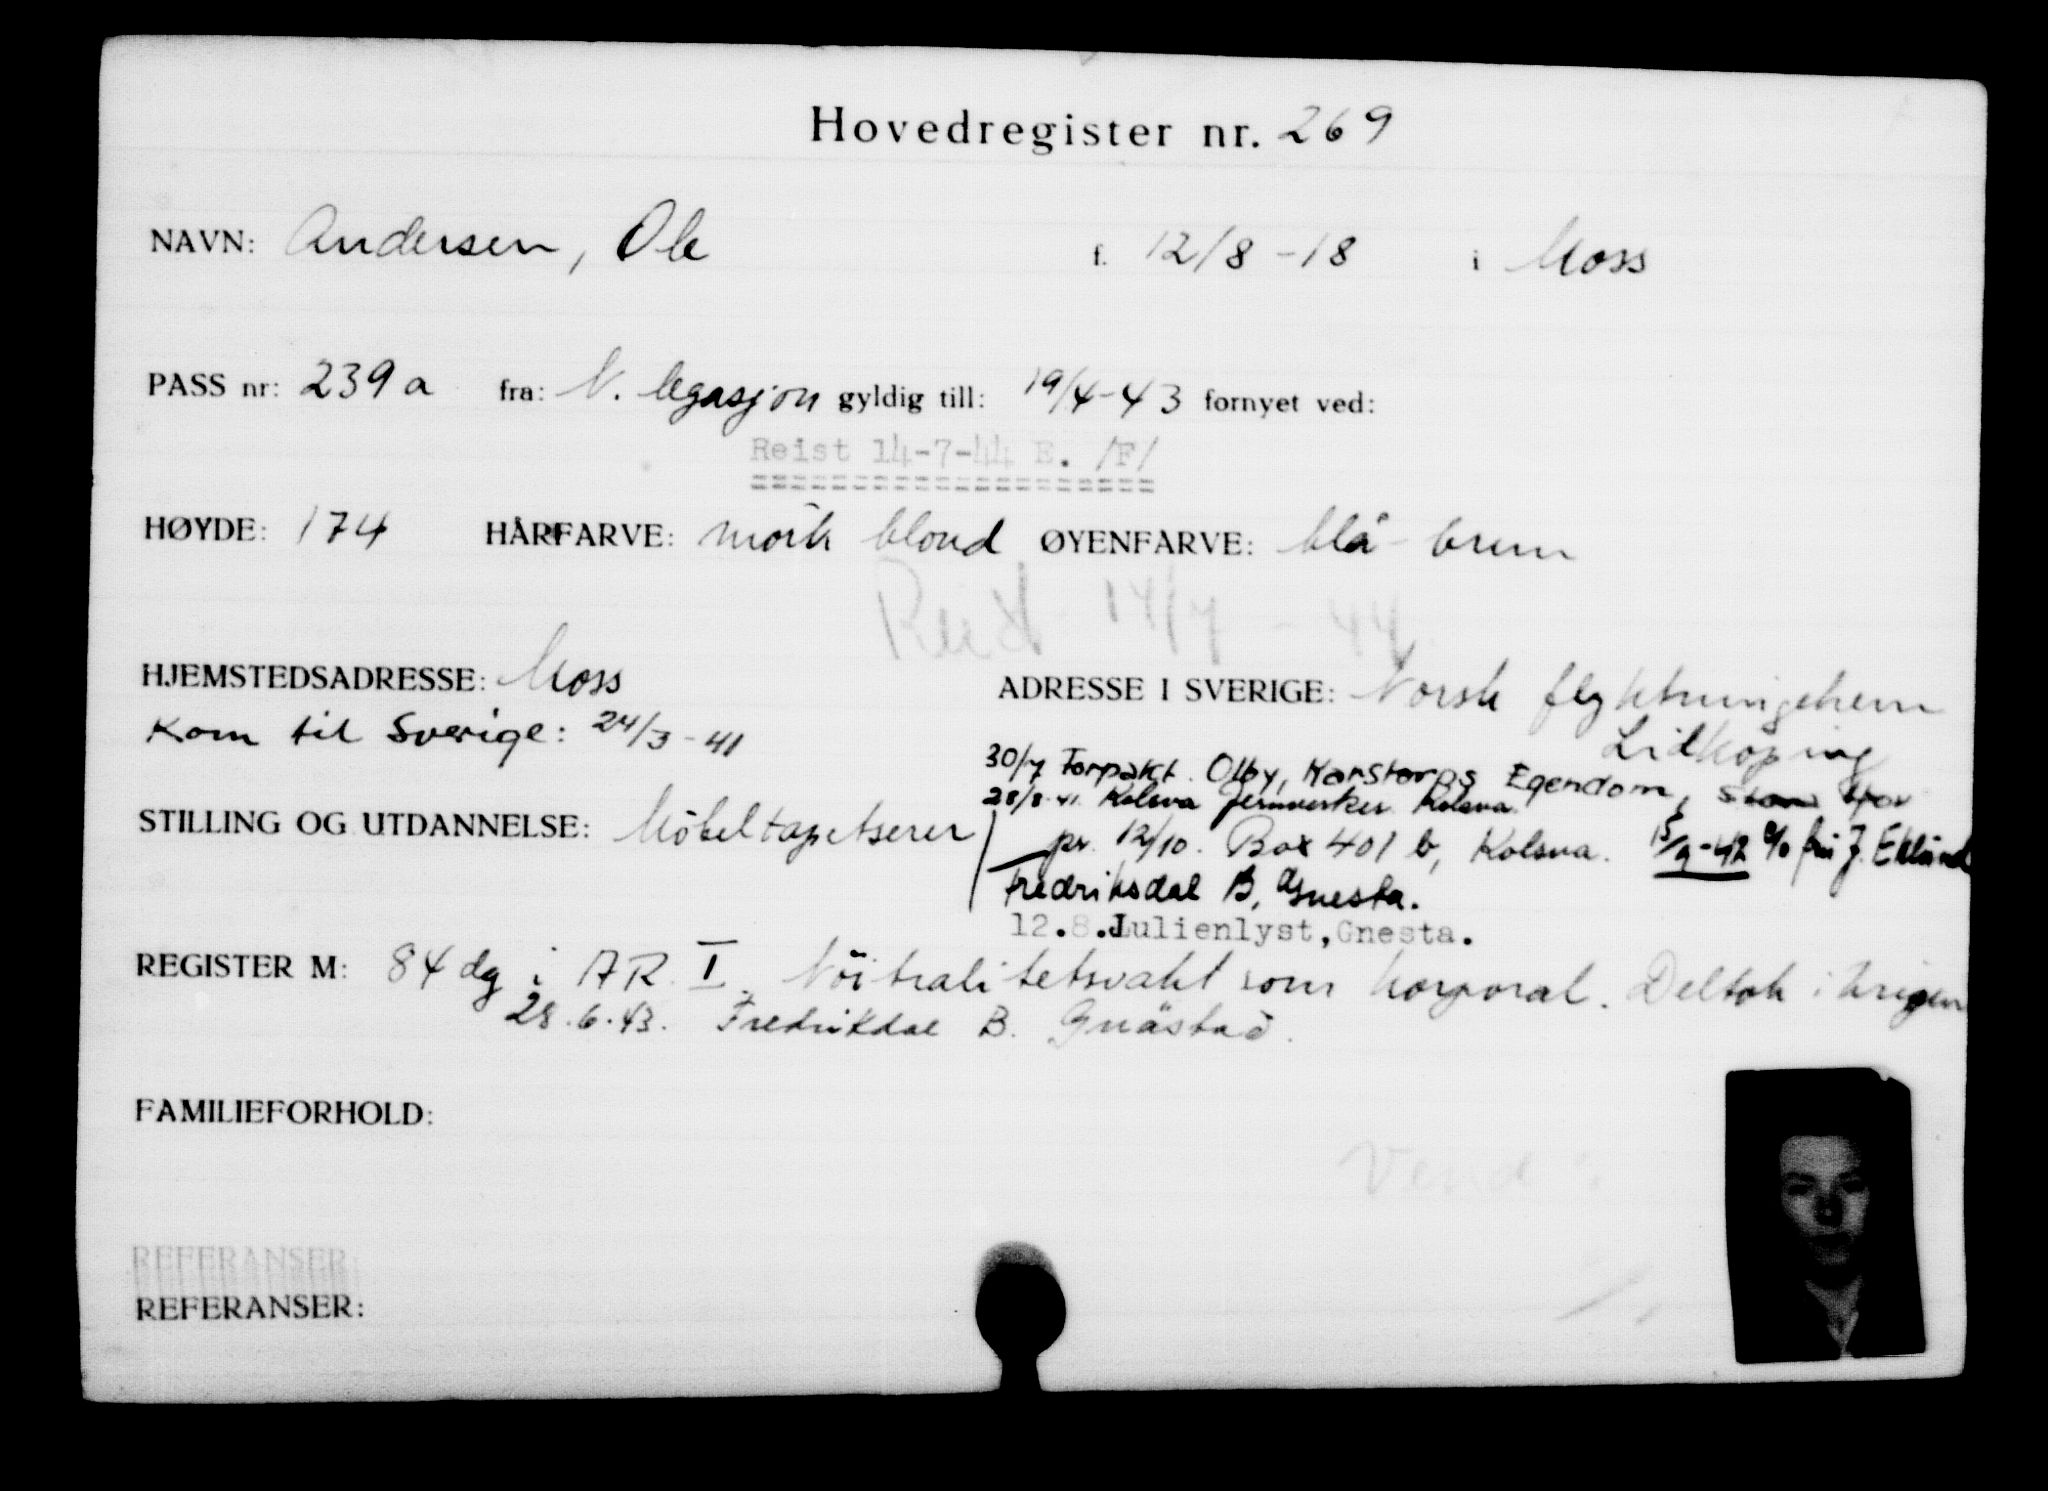 Hovedregister nr. 269
NAVN: Andersen, Ole f. 12/8-18 i Moss
PASS nr: 239 a fra: N. legasjon gyldig till: 19/4-43 fornyet ved:
Reist 14-7-44 E. /F/
HØYDE: 174 HÅRFARVE: mörk blond ØYENFARVE: blå-brun
Reist 14/7-44
HJEMSTEDSADRESSE: Moss ADRESSE I SVERIGE: Norsk flyktningehem
Kom til Sverige: 24/3-41 Lidköping
30/7 Forpakt. Olby, Karstorps Egendom,
28/8-41. Kolsva Jernverker Kolsva.
STILLING OG UTDANNELSE: Möbeltapetserer
pr. 12/10. Box 401 b, Kolsva. 15/9-42 c/o fru J. Eklund
Fredriksdal B, Gnesta.
12.8.Julienlyst,Gnesta.
REGISTER M: 84 dg i AR. I. Nöitralitetsvakt som korporal. Deltok i krigen
28.6.43. Fredrikdal B. Gnästad.
FAMILIEFORHOLD:
Vend
REFERANSER:
REFERANSER: